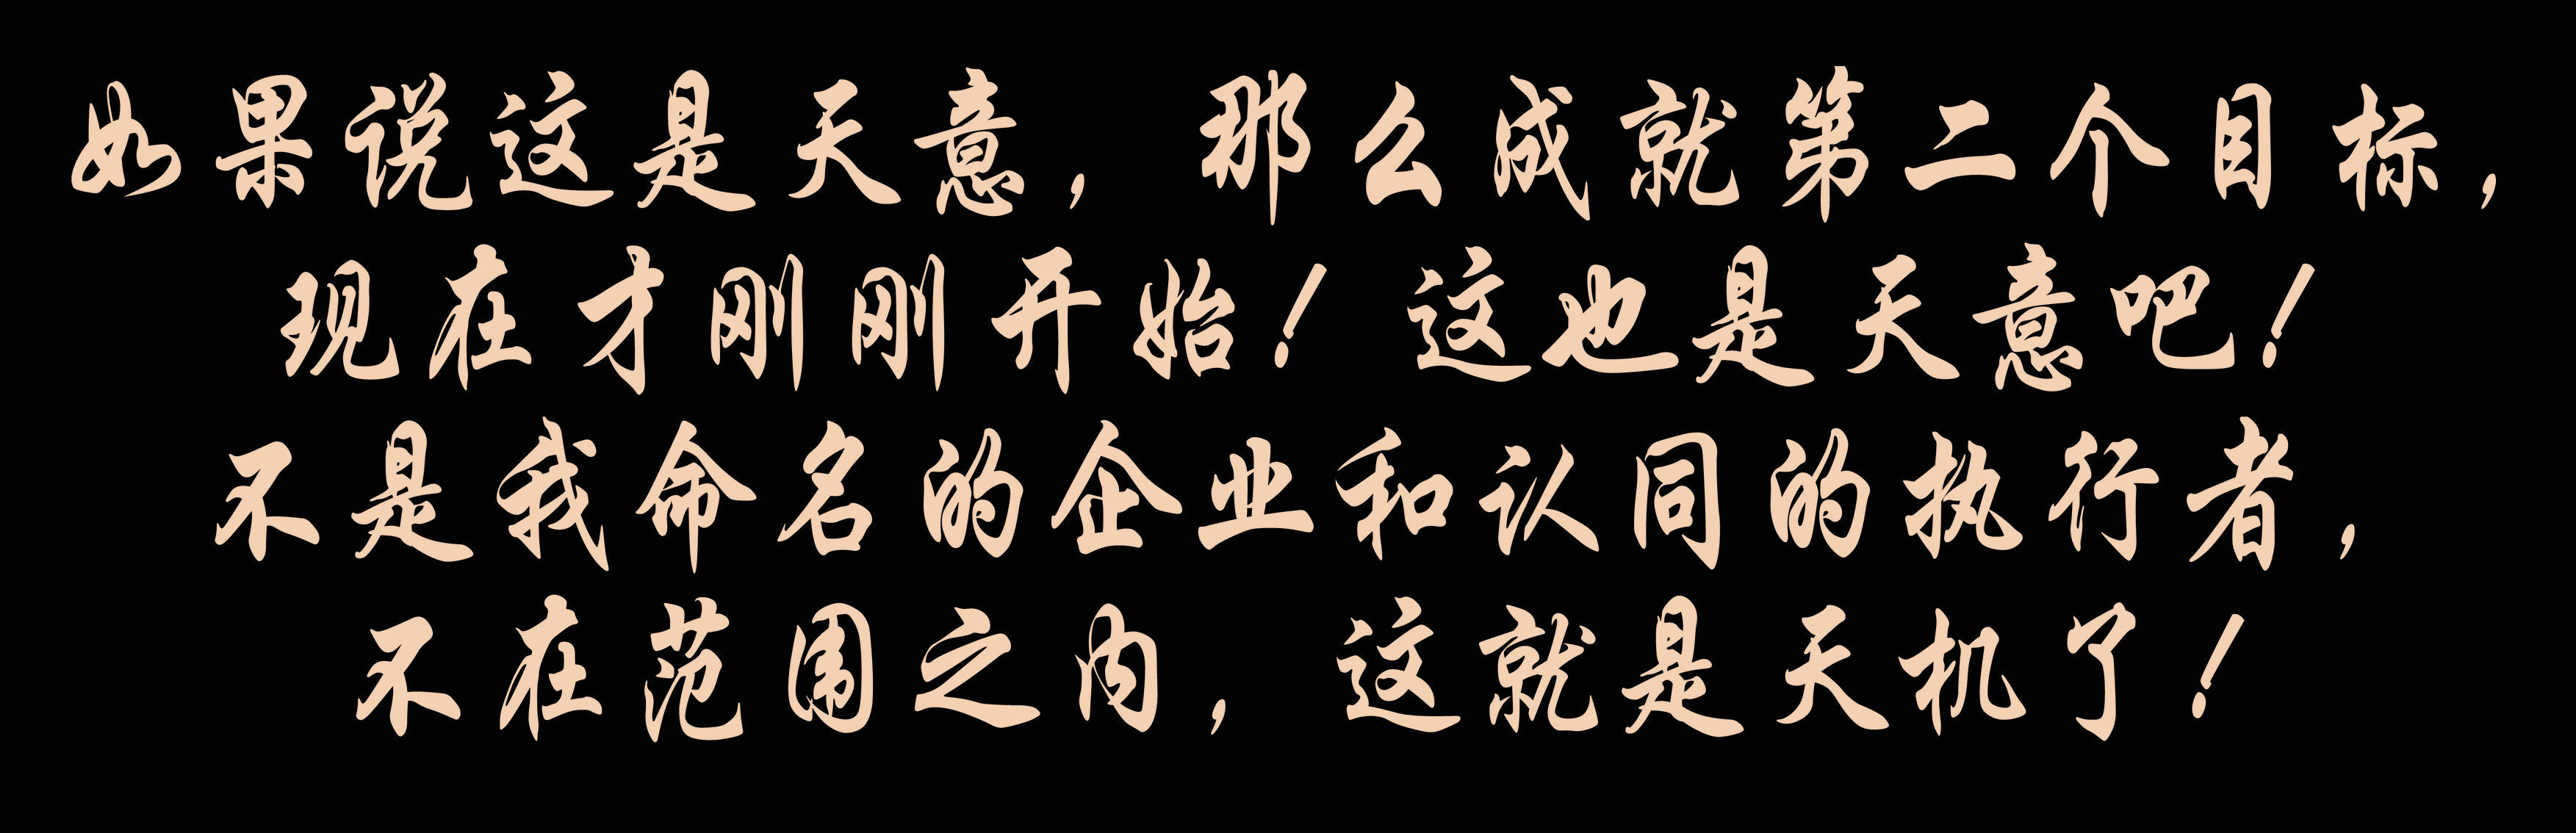 如果说这是天意，那么成就第二个目标，
现在才刚刚开始！这也是天意吧！
不是我命名的企业和认同的执行者，
不在范围之内，这就是天机了！